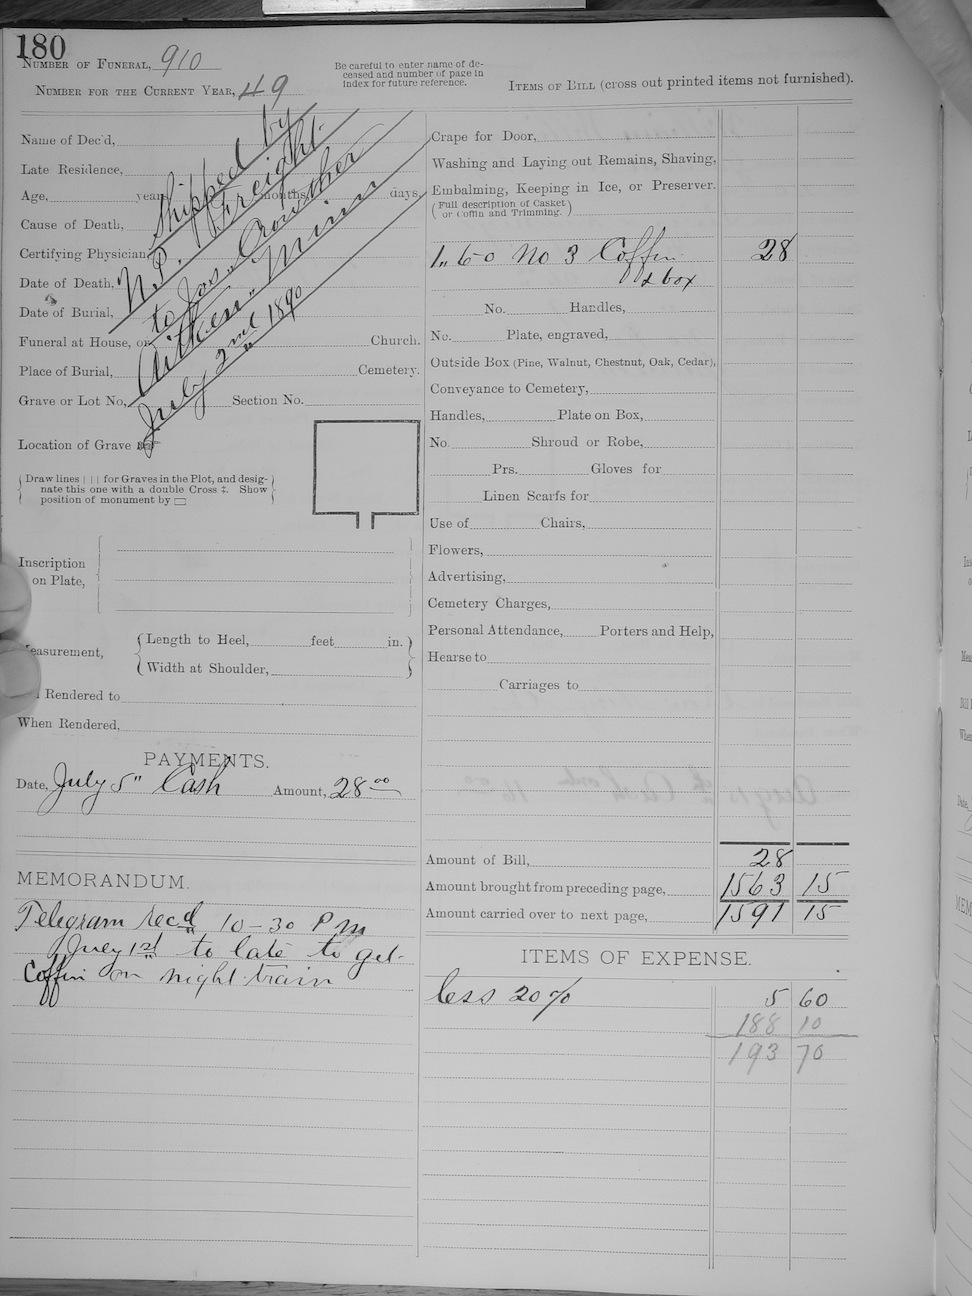 180
NUMBER OF FUNERAL, 910
NUMBER FOR THE CURRENT YEAR, 49
Be careful to enter name of de-
ceased and number of page in
index for future reference.
ITEMS OF BILL (cross out printed items not furnished).
Name of Dec'd,
Late Residence,
Age, years months days.
Cause of Death,
Certifying Physician
Date of Death,
Date of Burial,
Funeral at House, or Church.
Place of Burial, Cemetery.
Grave or Lot No. Section No.
Shipped by
N.P. Freight.
to Jas. Crowther
Aitken" Minn
July 2nd 1890
Location of Grave
Draw lines | | | for Graves in the Plot, and desig-
nate this one with a double Cross ‡. Show
position of monument by ▭
Inscription
on Plate,
Measurement,
Length to Heel, feet in.
Width at Shoulder,
Rendered to
When Rendered,
PAYMENTS.
Date, July 5" Cash Amount, 28 00
MEMORANDUM.
Telegram recd 10-30 P m
July 1st to late to get
Coffin on night train
Crape for Door,
Washing and Laying out Remains, Shaving,
Embalming, Keeping in Ice, or Preserver.
( Full description of Casket
or Coffin and Trimming. )
1" 6-0 No 3 Coffin 28
& box
No. Handles,
No. Plate, engraved,
Outside Box (Pine, Walnut, Chestnut, Oak, Cedar),
Conveyance to Cemetery,
Handles, Plate on Box,
No. Shroud or Robe,
Prs. Gloves for
Linen Scarfs for
Use of Chairs,
Flowers,
Advertising,
Cemetery Charges,
Personal Attendance, Porters and Help,
Hearse to
Carriages to
Amount of Bill, 28
Amount brought from preceding page, 1563 15
Amount carried over to next page, 1591 15
ITEMS OF EXPENSE.
less 20% 5 60
188 10
193 70